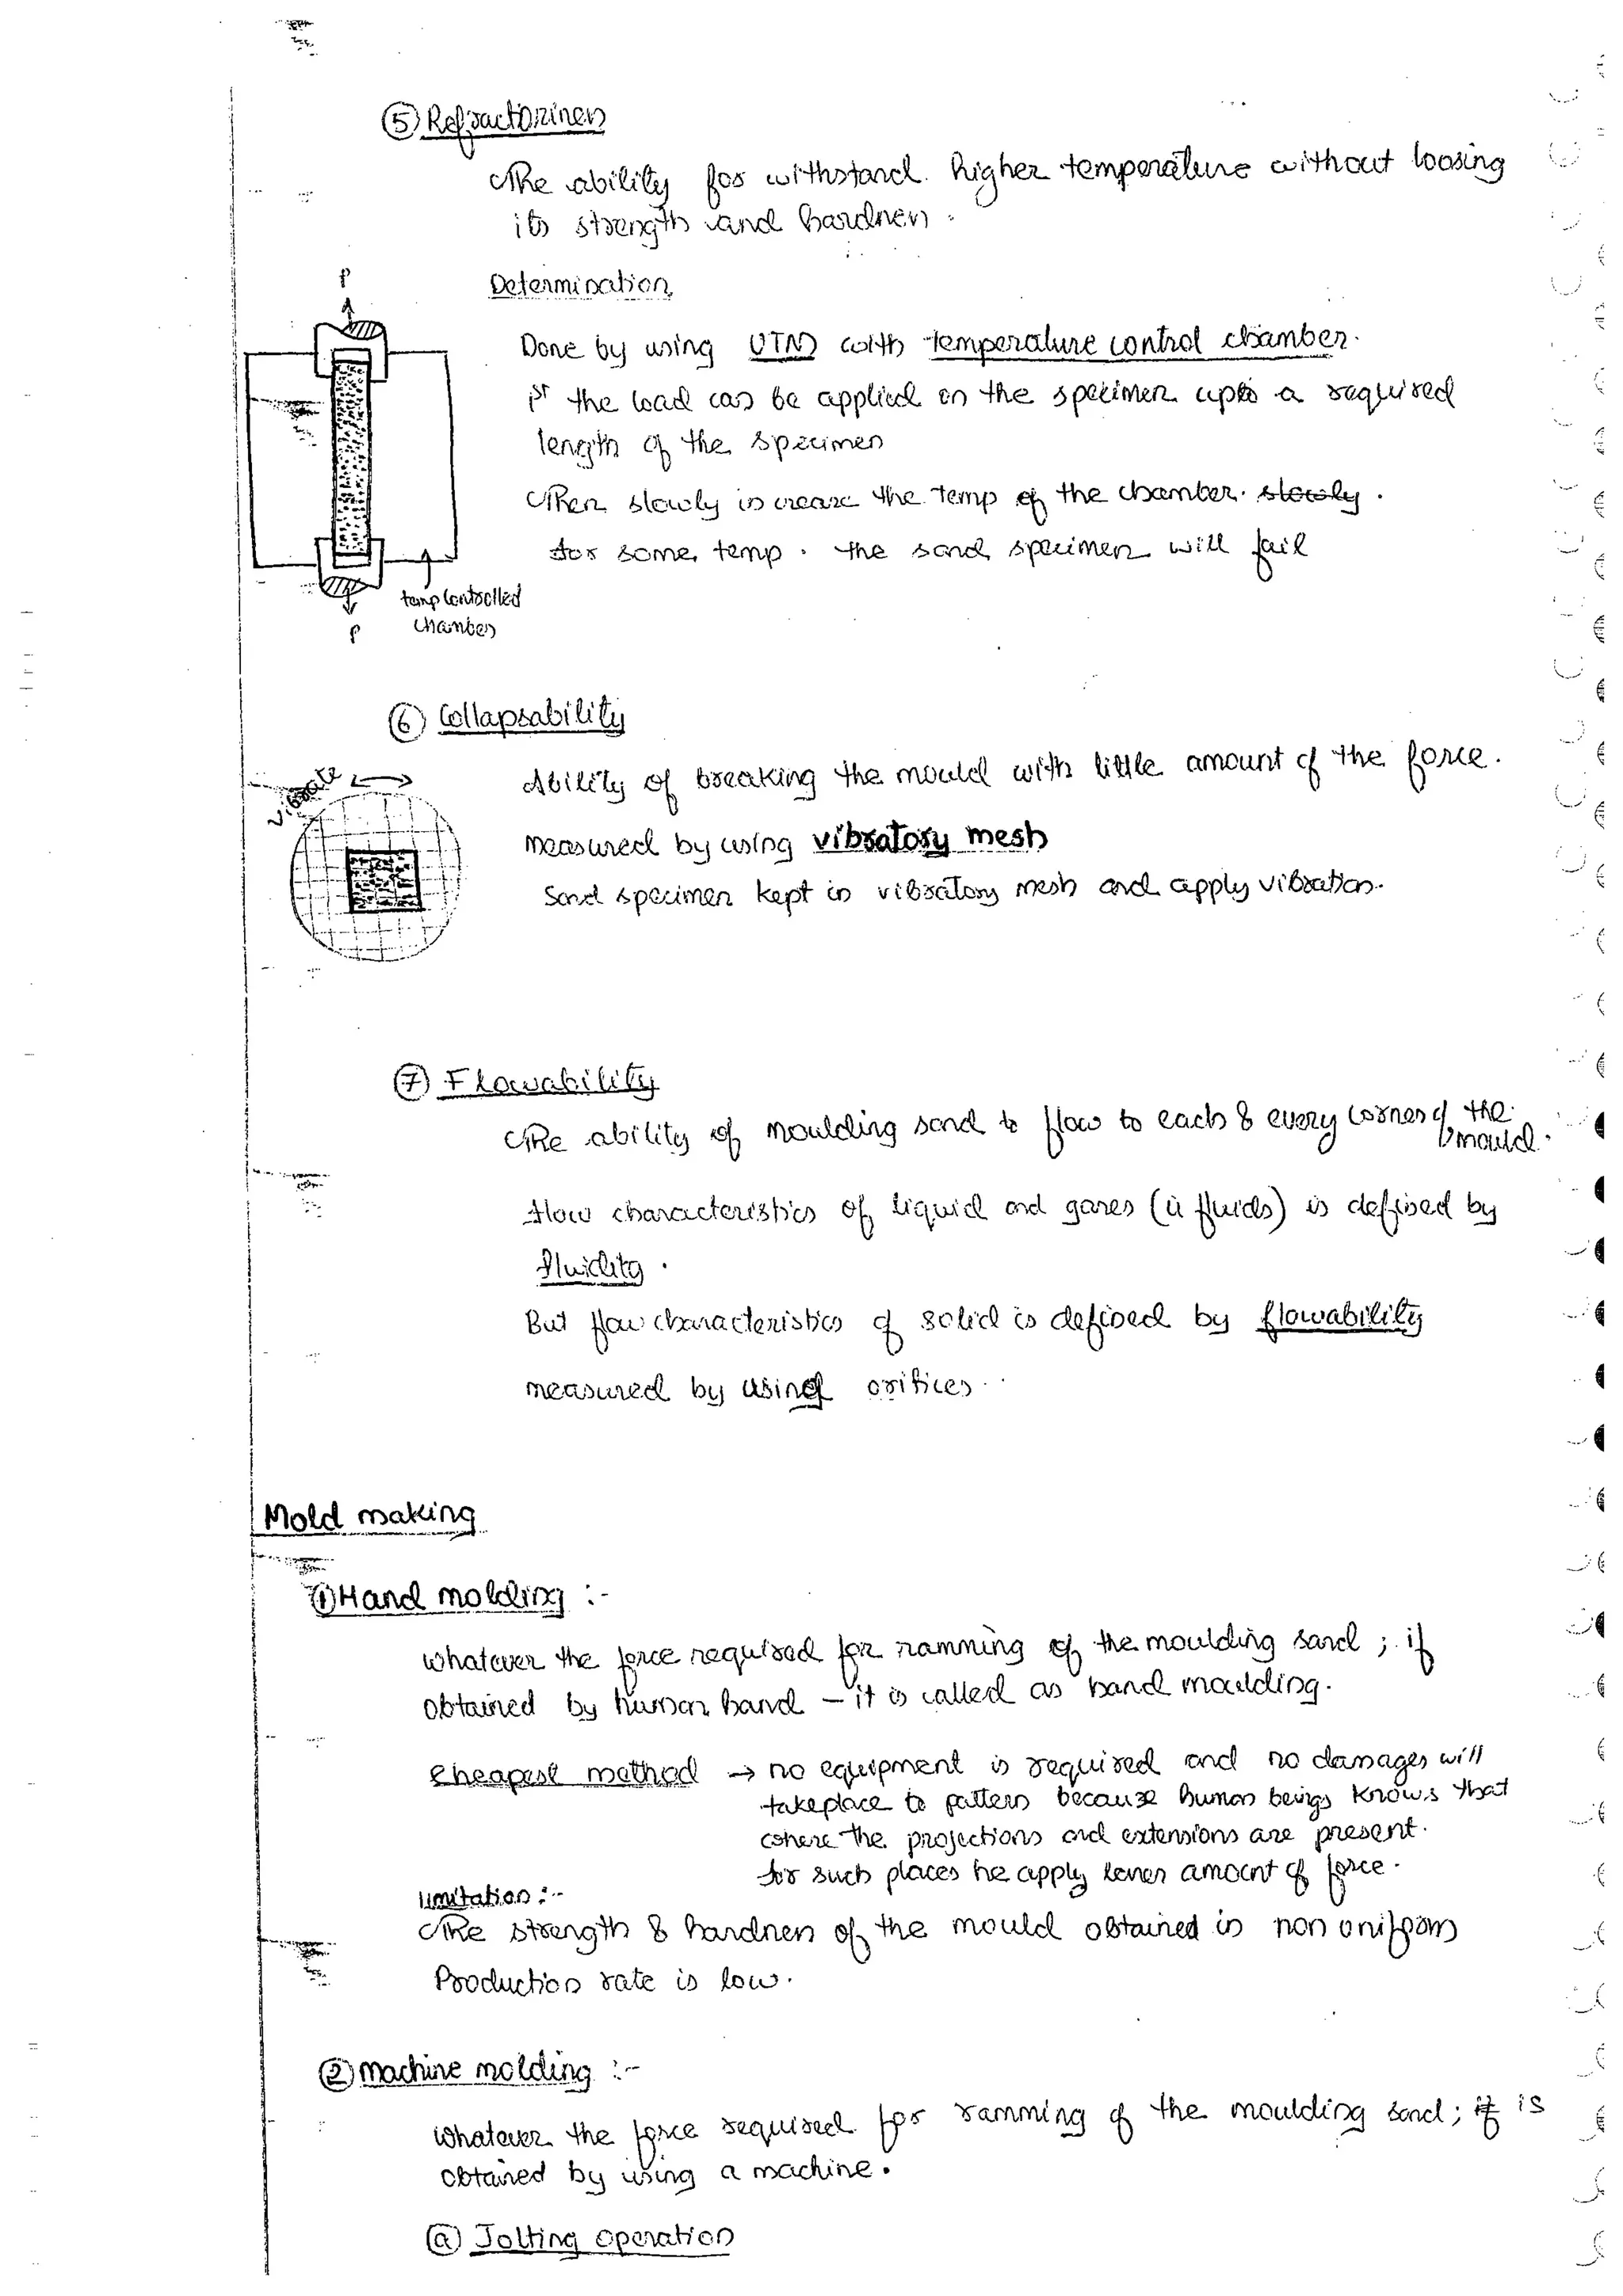 ⑤ Refractoriness
The ability for withstand higher temperature without loosing
its strength and hardness.
Determination
P
Done by using UTM with temperature control chamber.
1st the load can be applied on the specimen upto a required
length of the specimen
Then slowly increase the temp of the chamber. slowly.
for some temp. the sand specimen will fail
temp controlled
chamber
P
⑥ Collapsability
Ability of breaking the mould with little amount of the force.
vibrate
measured by using vibratory mesh
Sand specimen kept in vibratory mesh and apply vibration.
⑦ Flowability
The ability of moulding sand to flow to each & every corner of the
mould.
flow characteristics of liquid and gases (ii fluids) is defined by
fluidity.
But flow characteristics of solid is defined by flowability
measured by using orifices.
Mold making
① Hand molding :-
whatever the force required for ramming of the moulding sand ; if
obtained by human hand - it is called as hand moulding.
Cheapest method → no equipment is required and no damages will
takeplace to pattern because human beings knows that
where the projections and extensions are present.
for such places he apply lesser amount of force.
limitation :-
The strength & hardness of the mould obtained is non uniform
Production rate is low.
② machine molding :-
whatever the force required for ramming of the moulding sand ; if is
obtained by using a machine.
ⓐ Jolting operation